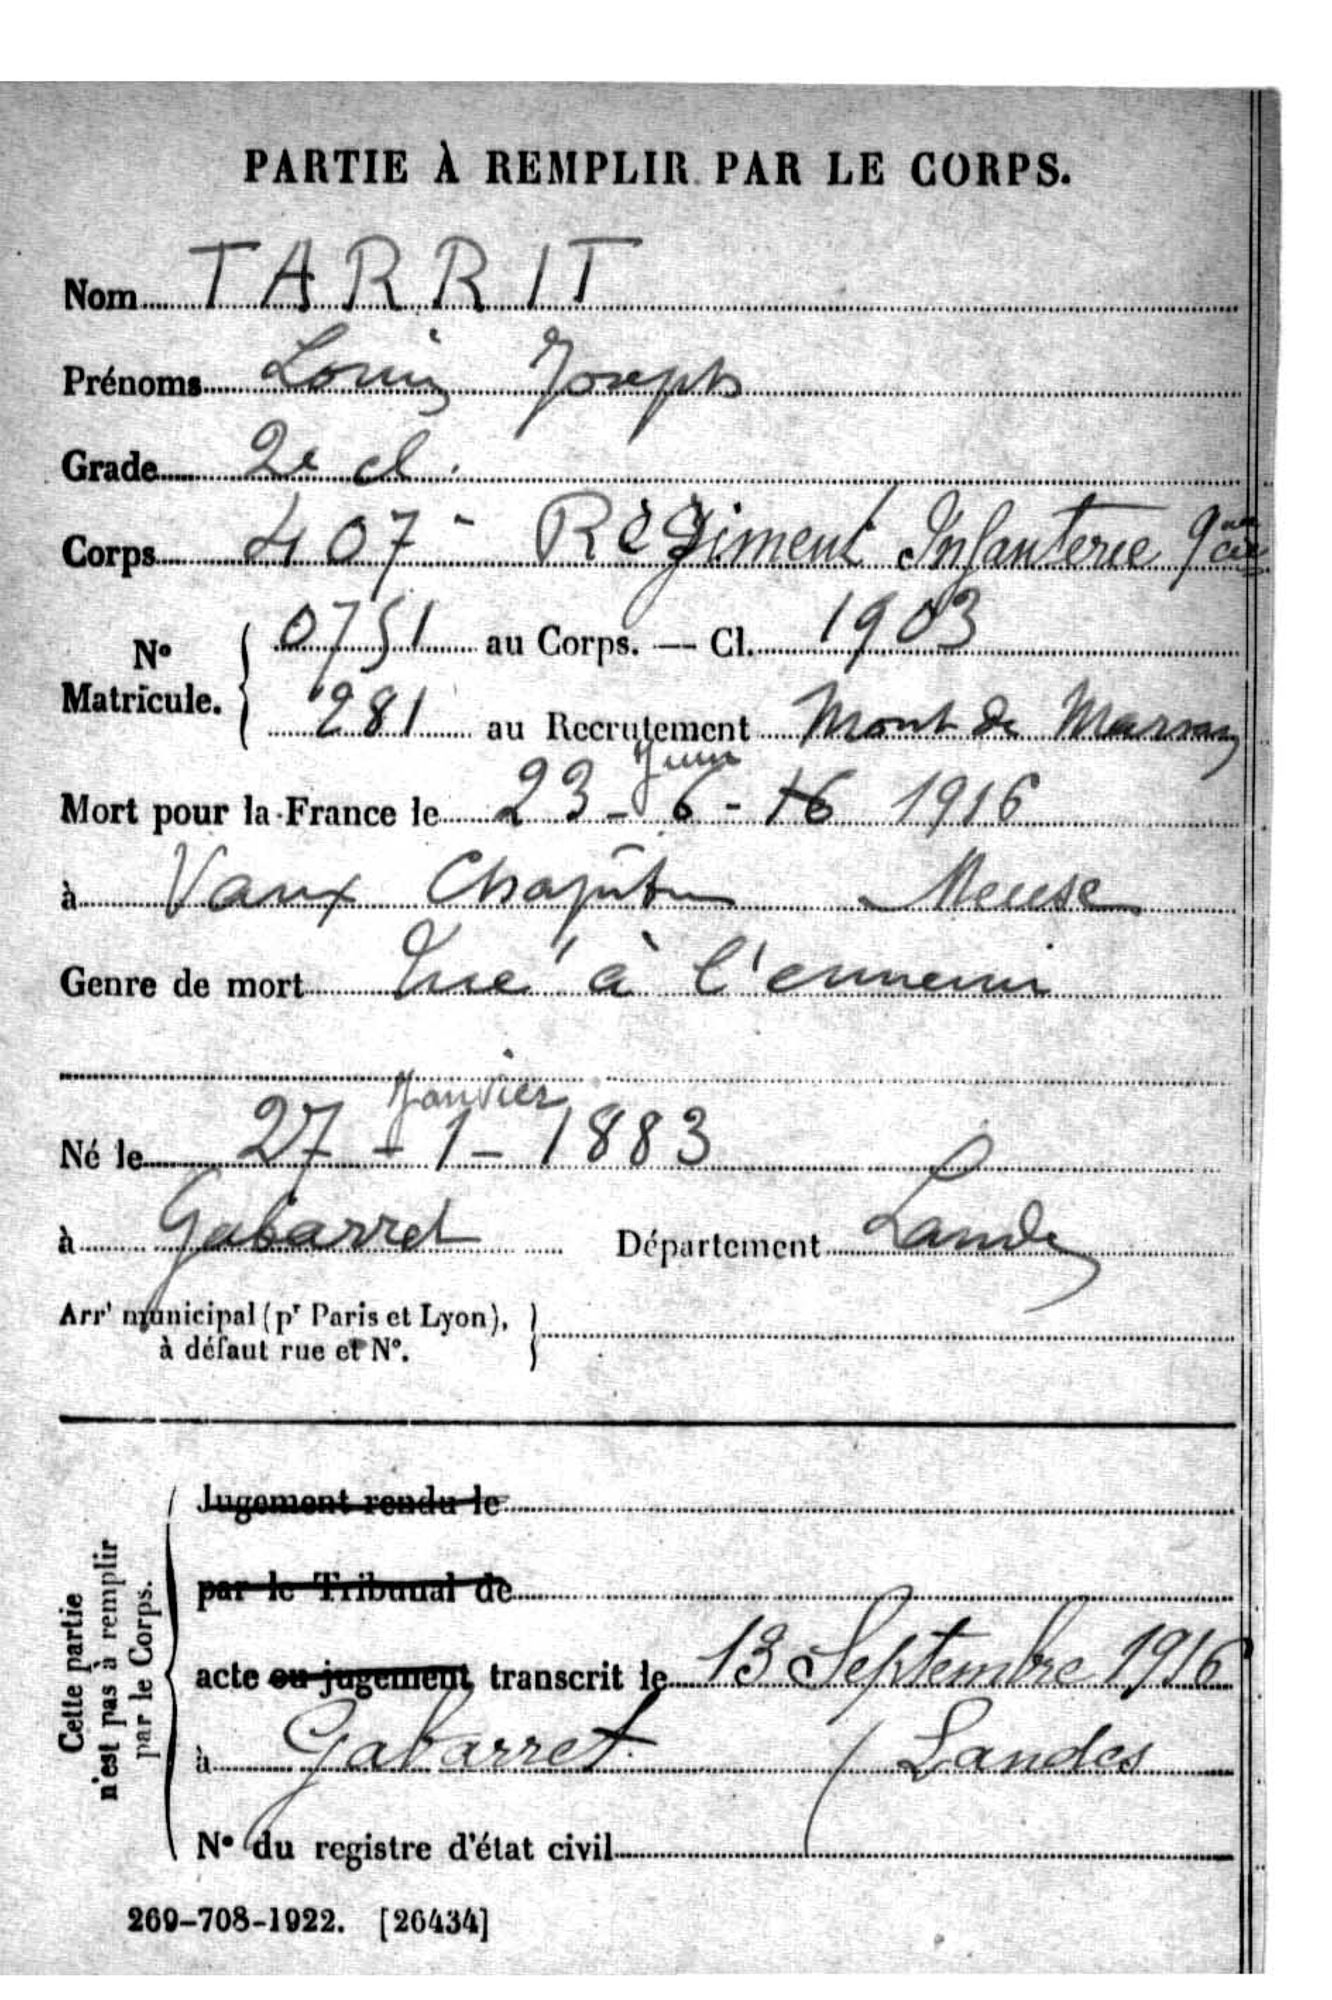 PARTIE À REMPLIR PAR LE CORPS.
Nom TARRIT
Prénoms Louis Joseph
Grade 2e cl.
Corps 407e Régiment Infanterie 9ème Cie
No Matricule. { 0751 au Corps. — Cl. 1903
281 au Recrutement Mont de Marsan
Juin
Mort pour la France le 23-6-16 1916
à Vaux Chapitre Meuse
Genre de mort Tué à l'ennemi
Janvier
Né le 27-1-1883
à Gabarret Département Landes
Arrt municipal (pr Paris et Lyon),
à défaut rue et N°.
Cette partie
n'est pas à remplir
par le Corps.
Jugement rendu le
par le Tribunal de
acte ou jugement transcrit le 13 Septembre 1916
à Gabarret (Landes
N° du registre d'état civil
269-708-1922. [26434]